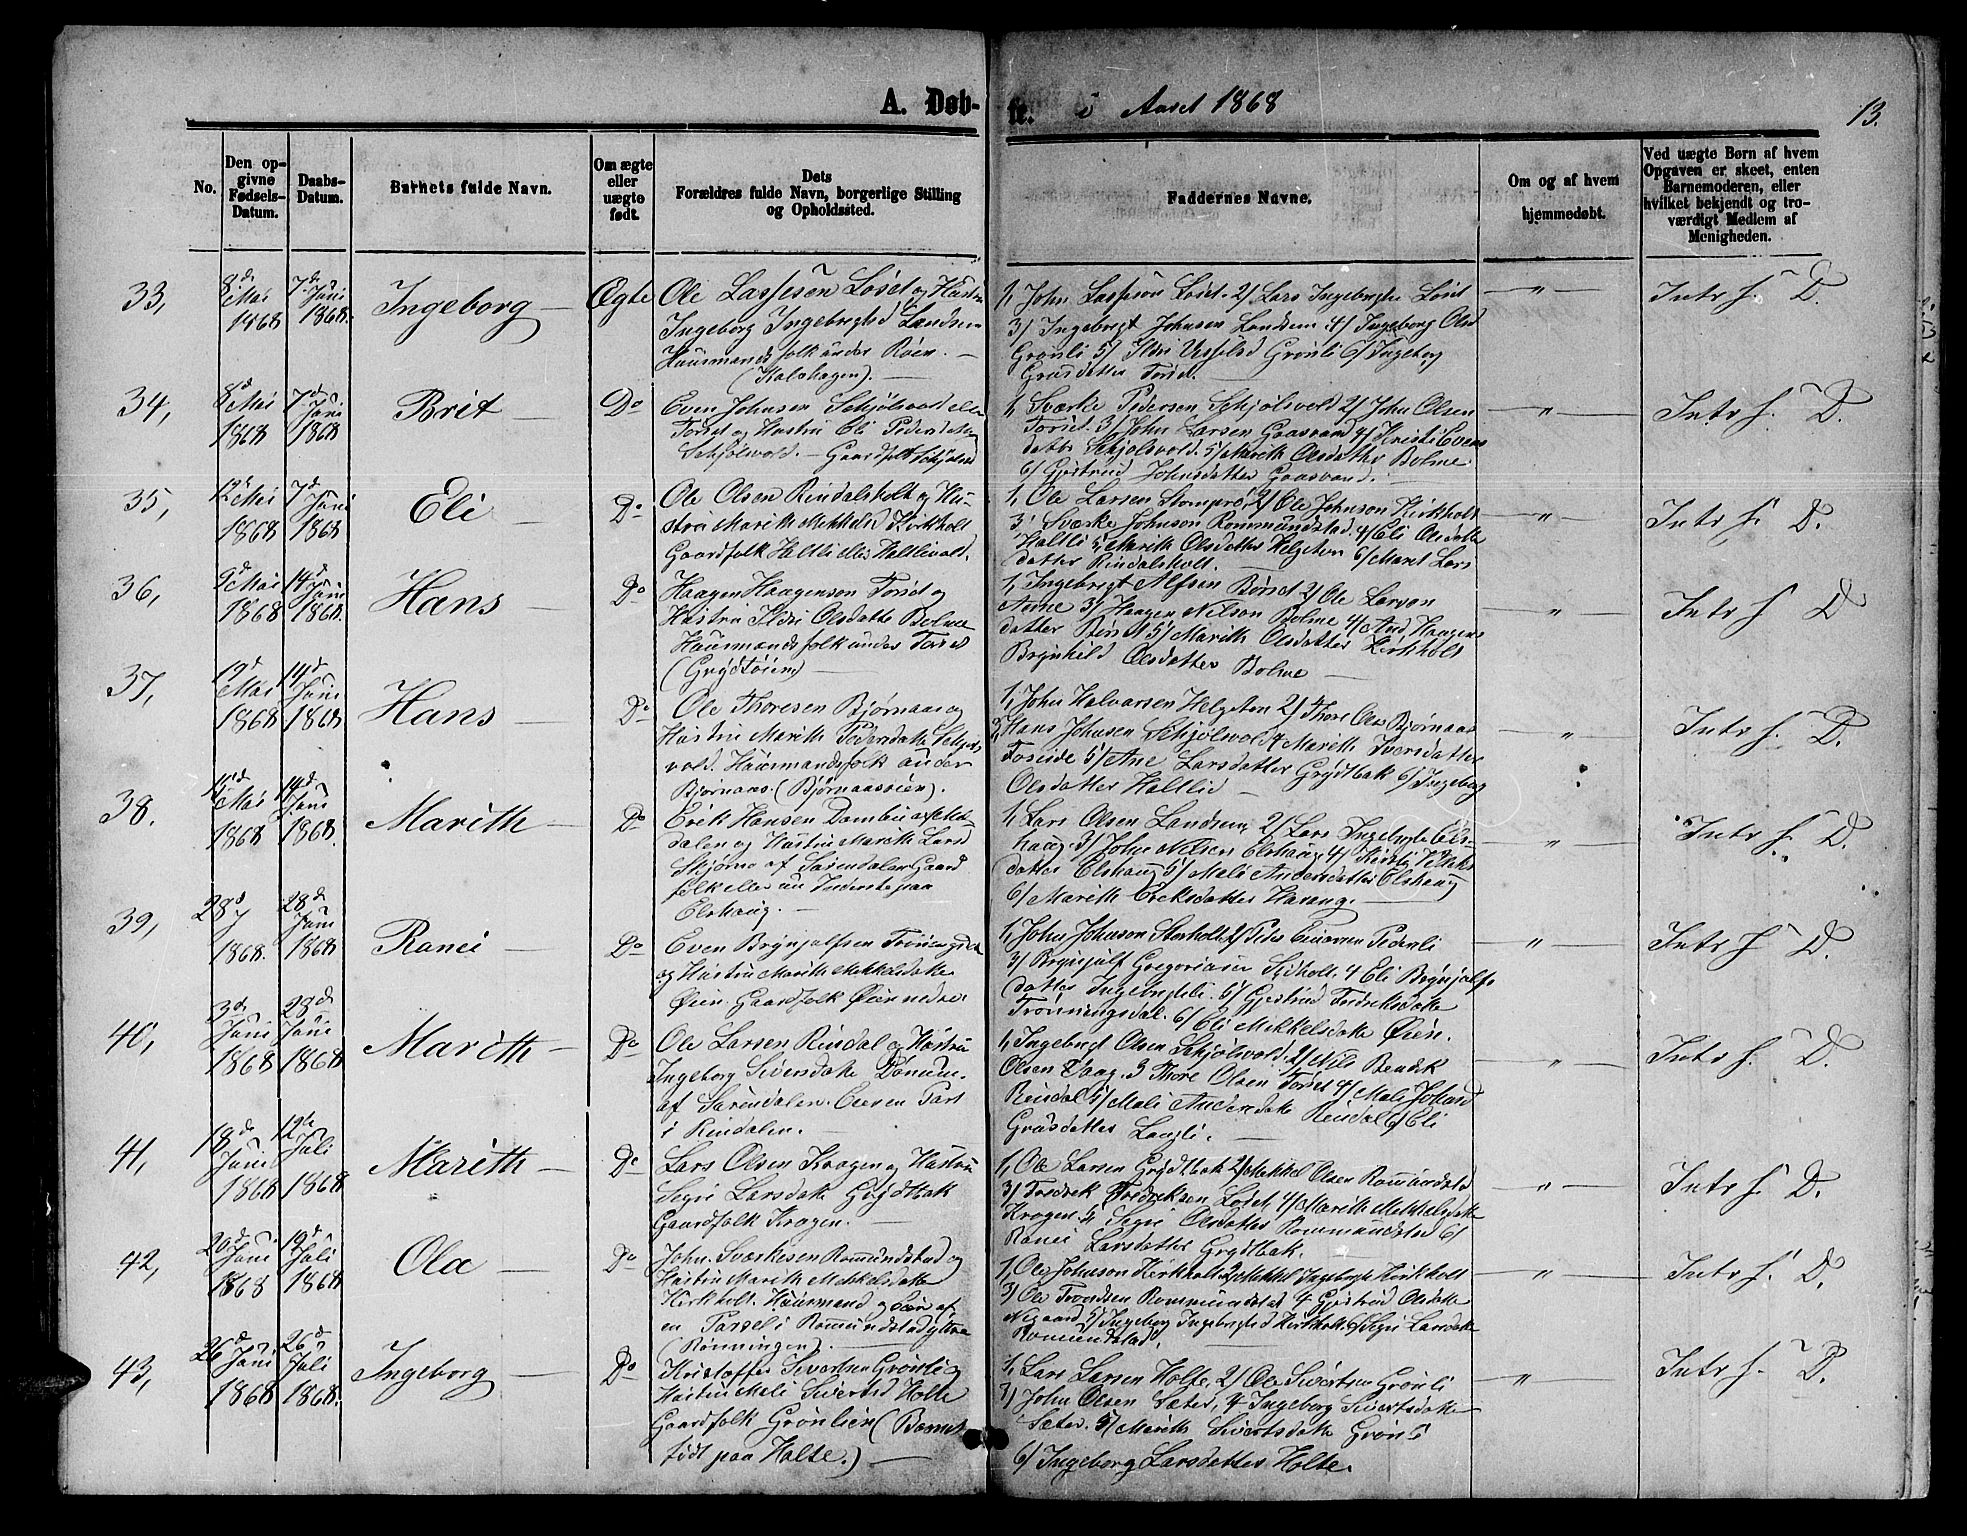 A. Døb-
te. i Aaret 1868
13.
No.
Den op-
givne
Fødsels-
Datum.
Daabs-
Datum.
Barnets fulde Navn.
Om ægte
eller
uægte
født.
Dets
Forældres fulde Navn, borgerlige Stilling
og Opholdssted.
Faddernes Navne.
Om og af hvem
hjemmedøbt.
Ved uægte Børn af hvem
Opgaven er skeet, enten
Barnemoderen, eller
hvilket bekjendt og tro-
værdigt Medlem af
Menigheden.
33,
8d Mai 1868
7d Juni 1868.
Ingeborg
Ægte
Ole Lassesen Løset og Hustru
Ingeborg Ingebrigtsd Landsem
Huusmandsfolk under Røen.
(Kalvhagen).
1, John Lassesøn Løset. 2/ Lars Ingebrigts Løset
3/ Ingebrigt Johnsen Landsem 4/ Ingeborg Olsd
Grønli 5/ Ildri Sivertsd Grønli 6/ Ingeborg
Torset.
"
Intr f. D.
34,
8d Mai 1868
7d Juni 1868
Brit
Do
Even Johnsen Schjølsvold eller
Torset og Hustru Eli Pedersdatter
Schjølsvold. Gaardfolk Schjølsvold
1, Sværke Pedersen Schjølsvold 2/ John Olsen
Torset. 3/ John Larsen Gaasvand 4/ Kristi Evens
datter Schjølsvold. 5/ Marith Olsdatter Bolme
6/ Gjertrud Johnsdatter Gaasvand.
"
Intr f. D.
35,
12te Mai 1868
7d Juni 1868
Eli
Do
Ole Olsen Rindalsholt og Hu-
stru Marith Mekkelsd Kirkholt
Gaardfolk Haltli eller Haltlivold.
1, Ole Larsen Stomprø, 2/ Ole Johnsøn Kirkholt
3 Sværke Johnsøn Rommundstad. 4/ Eli Olsdatter
Haltli 5, Marith Olsdatter Helgetun 6/ Maret Lars
datter Rindalsholt.
"
Intr f. D.
36,
9d Mai 1868
14d Juni 1868.
Hans
Do
Haagen Haagensøn Torset og
Hustru Ildri Olsdatter Bolme
Huusmandsfolk under Torset
(Grydtøien)
1, Ingebrigt Alfsen Børset 2/ Ole Larsøn
Aune 3/ Haagen Nilsøn Bolme 4/ And. Haagens
datter Børset 5/ Marith Olsdatter Kirkholt
Brynhild Olsdatter Bolme
"
Intr f D
37,
19d Mai 1868
14d Juni 1868
Hans
Do
Ole Thoresen Bjørnaas og
Hustru Marith Pedersdatter Schjøls-
vold. Huusmandsfolk under
Bjørnaas. (Bjørnaasøien).
1, John Halvarsen Helgetun 2/ Thore Ols Bjørnaas
3, Hans Johnsen Schjølsvold 4 Marith Iversdatter
Torset 5/ Ane Larsdatter Grydtbak 6/ Ingeborg
Olsdatter Haltlie
"
Intr f. D.
38.
Mai 1868
14d Juni 1868.
Marith
Do
Erik Hansen Dombu af Mel-
dalen og Hustru Marith Larsd
Skjørmo af Surendalen Gaard
folk eller nu Inderste paa
Elshaug.
1, Lars Olsen Landsem, 2/ Lars Ingebrigts Els-
haug 3/ John Nilsen Elshaug 4/ Kirsti
datter Elshaug 5/ Mali Andersdatter Elshaug
6/ Marith Eriksdatter Harang.
"
Intr f. D.
39,
28d 1868.
28d Juni 1868
Ranei
Do
Even Brynjulfsen Trønningsdal
og Hustru Marith Mekkelsdatter
Øien. Gaardfolk Øien nedre
1, John Johnson Storholt 2/ Peder Einarsen Pederli
3/ Brynjulf Gregoriusen Sjøholt. 4 Eli Brynjulfs
datter Ingebrigtli. 5/ Gjertrud Fredriksdatter
Trønningsdal. 6/ Eli Mikkelsdatter Øien.
"
Intr f D.
40,
3d Juni 1868
28d Juni 1868
Marith
Do
Ole Larsen Rindal og Hustru
Ingeborg Siversdatter Dønnem.
af Surendalen. Eier en Part
i Rindalen.
1, Ingebrigt Olsen Schjølsvold. 2/ Nils Bendik
Olsen Vaag. 3 Thore Olsen Torset 4/ Mali Johansd
Rindal 5/ Mali Andersdatter Rindal 6/ Eli
Langli.
"
Intr f. D.
41,
18d Juni 1868
12te Juli 1868
Marith
Do
Lars Olsen Krogen og Hustru
Segri Larsdatter Grydtbak
Gaardfolk Krogen.
1, Ole Larsen Grydtbak 2/ Mekkel Olsen Rommundstad
3/ Fredrik Fredriksen Løset, 4/ Marith Mekkelsdatter
Krogen. 5, Segri Olsdatter Rommundstad 6/
Ranei Larsdatter Grydtbak.
"
Intr f. D.
42,
20d Juni 1868
19d Juli 1868
Ola
Do
John Sværkesen Rommundstad og
Hustru Marith Mekkelsdatter
Kirkholt. Huusmand og Eier af
en Parsel i Rommundstadyttre
(Rønningen).
1, Ole Johnson Kirkholt. 2, Mekkel Ingebrigts Kirkholt
3/ Ole Trondsen Rommundstad 4 Gjertrud Olsdatter
Nigaard 5/ Ingeborg Ingebrigtsd Kirkholt 6/ Segri Larsdatter
Romundstad.
"
Intr f. D.
43,
26d Juni 1868
26d Juli 1868.
Ingeborg
Do
Kristoffer Sivertsen Grønli og
Hustru Mali Sivertsd Holte
Gaardfolk Grønlien (Barnet
født paa Holte.)
1, Lars Larsen Holte. 2/ Ole Sivertsen Grønli
3/ John Olsen Sæter, 4 Ingeborg Sivertsdatter
Sæter. 5/ Marith Sivertsdatter Grønli
6/ Ingeborg Larsdatter Holte.
"
Intr f. D.